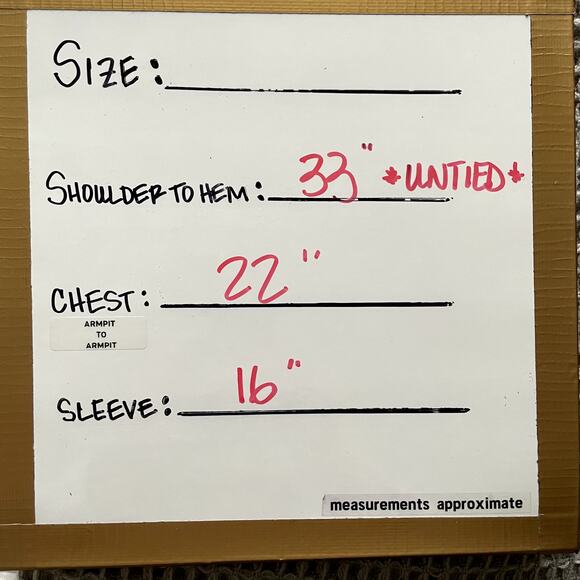 SIZE:
SHOULDER TO HEM: 33" *UNTIED*
CHEST: 22"
ARMPIT
TO
ARMPIT
SLEEVE: 16"
measurements approximate